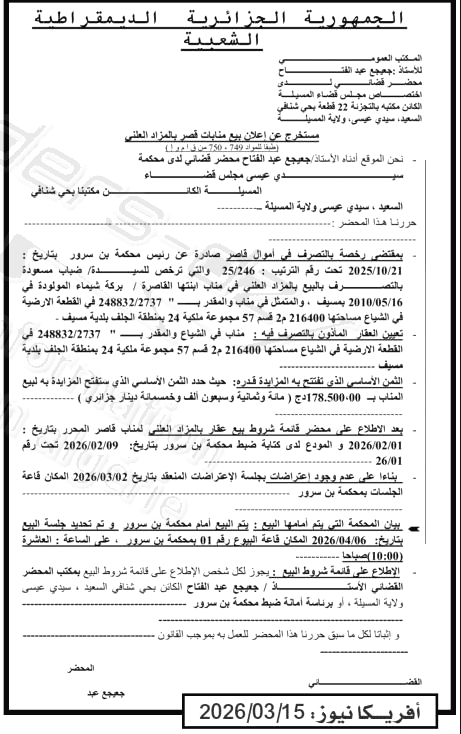 الجمهورية الجزائرية الديمقراطية
الشعبية
المكتب العمومي
للأستاذ :جعيجع عبد الفتاح
محضر قضائي لدى
اختصاص مجلس قضاء المسيلة
الكائن مكتبه بالتجزئة 22 قطعة بحي شنافي
السعيد، سيدي عيسى، ولاية المسيلة
مستخرج عن إعلان بيع منابات قصر بالمزاد العلني
(طبقا للمواد 749 ، 750 من ق إ م و إ )
- نحن الموقع أدناه الأستاذ/جعيجع عبد الفتاح محضر قضائي لدى محكمة
سيدي عيسى مجلس قضاء
المسيلة الكائن مكتبنا بحي شنافي
السعيد ، سيدي عيسى ولاية المسيلة –----------
حررنا هذا المحضر :-----------------------------
- بمقتضى رخصة بالتصرف في أموال قاصر صادرة عن رئيس محكمة بن سرور بتاريخ :
2025/10/21 تحت رقم الترتيب : 25/246 والتي ترخص للسيدة/ ضباب مسعودة
بالتصرف بالبيع بالمزاد العلني في مناب ابنتها القاصرة / بركة شيماء المولودة في
2010/05/16 بمسيف ، والمتمثل في مناب والمقدر بـ " 248832/2737 في القطعة الارضية
في الشياع مساحتها 216400 م2 قسم 57 مجموعة ملكية 24 بمنطقة الجلف بلدية مسيف .
- تعيين العقار المأذون بالتصرف فيه : مناب في الشياع والمقدر بـ " 248832/2737 في
القطعة الارضية في الشياع مساحتها 216400 م2 قسم 57 مجموعة ملكية 24 بمنطقة الجلف بلدية
مسيف -----------------------------
- الثمن الأساسي الذي تفتتح به المزايدة قدره: حيث حدد الثمن الأساسي الذي ستفتح المزايدة به لبيع
المناب بـ 178.500،00دج ( مائة وثمانية وسبعون ألف وخمسمائة دينار جزائري ) ----------
- بعد الاطلاع على محضر قائمة شروط بيع عقار بالمزاد العلني لمناب قاصر المحرر بتاريخ :
2026/02/01 و المودع لدى كتابة ضبط محكمة بن سرور بتاريخ: 2026/02/09 تحت رقم
26/01 -----------------------------
- بناءا على عدم وجود إعتراضات بجلسة الإعتراضات المنعقد بتاريخ 2026/03/02 المكان قاعة
الجلسات بمحكمة بن سرور -----------------------------
بيان المحكمة التي يتم أمامها البيع : يتم البيع أمام محكمة بن سرور و تم تحديد جلسة البيع
بتاريخ: 2026/04/06 المكان قاعة البيوع رقم 01 بمحكمة بن سرور ، على الساعة : العاشرة
(10:00)صباحا -----------
- الإطلاع على قائمة شروط البيع : يجوز لكل شخص الإطلاع على قائمة شروط البيع بمكتب المحضر
القضائي الأستاذ / جعيجع عبد الفتاح الكائن بحي شنافي السعيد ، سيدي عيسى
ولاية المسيلة ، أو برئاسة أمانة ضبط محكمة بن سرور -----------------------------
و إثباتا لكل ما سبق حررنا هذا المحضر للعمل به بموجب القانون -----------------------------
المحضر
القضائي
جعيجع عبد
أفريكا نيوز: 2026/03/15